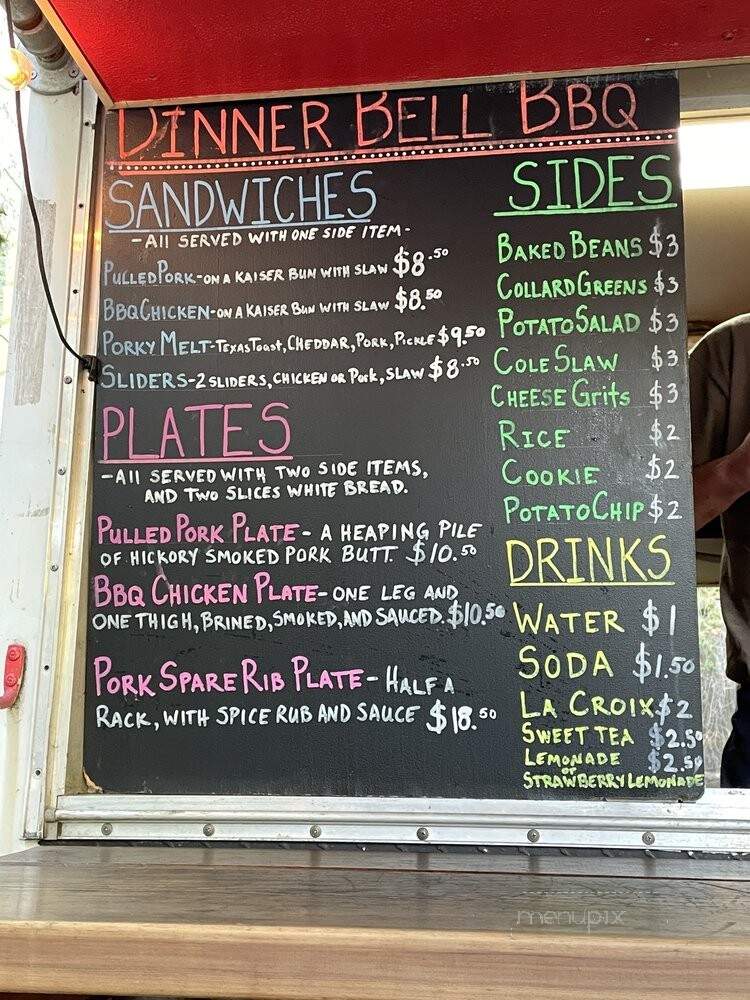 DINNER BELL BBQ
SANDWICHES
- All SERVED WITH ONE SIDE ITEM -
PULLED PORK - ON A KAISER BUN WITH SLAW $8.50
BBQ CHICKEN - ON A KAISER BUN WITH SLAW $8.50
PORKY MELT - TEXAS TOAST, CHEDDAR, PORK, PICKLE $9.50
SLIDERS - 2 SLIDERS, CHICKEN OR PORK, SLAW $8.50
PLATES
- All SERVED WITH TWO SIDE ITEMS,
AND TWO SLICES WHITE BREAD.
PULLED PORK PLATE - A HEAPING PILE
OF HICKORY SMOKED PORK BUTT. $10.50
BBQ CHICKEN PLATE - ONE LEG AND
ONE THIGH, BRINED, SMOKED, AND SAUCED. $10.50
PORK SPARE RIB PLATE - HALF A
RACK, WITH SPICE RUB AND SAUCE $18.50
SIDES
BAKED BEANS $3
COLLARD GREENS $3
POTATO SALAD $3
COLE SLAW $3
CHEESE GRITS $3
RICE $2
COOKIE $2
POTATO CHIP $2
DRINKS
WATER $1
SODA $1.50
LA CROIX $2
SWEET TEA $2.50
LEMONADE $2.50
or
STRAWBERRY LEMONADE
menupix